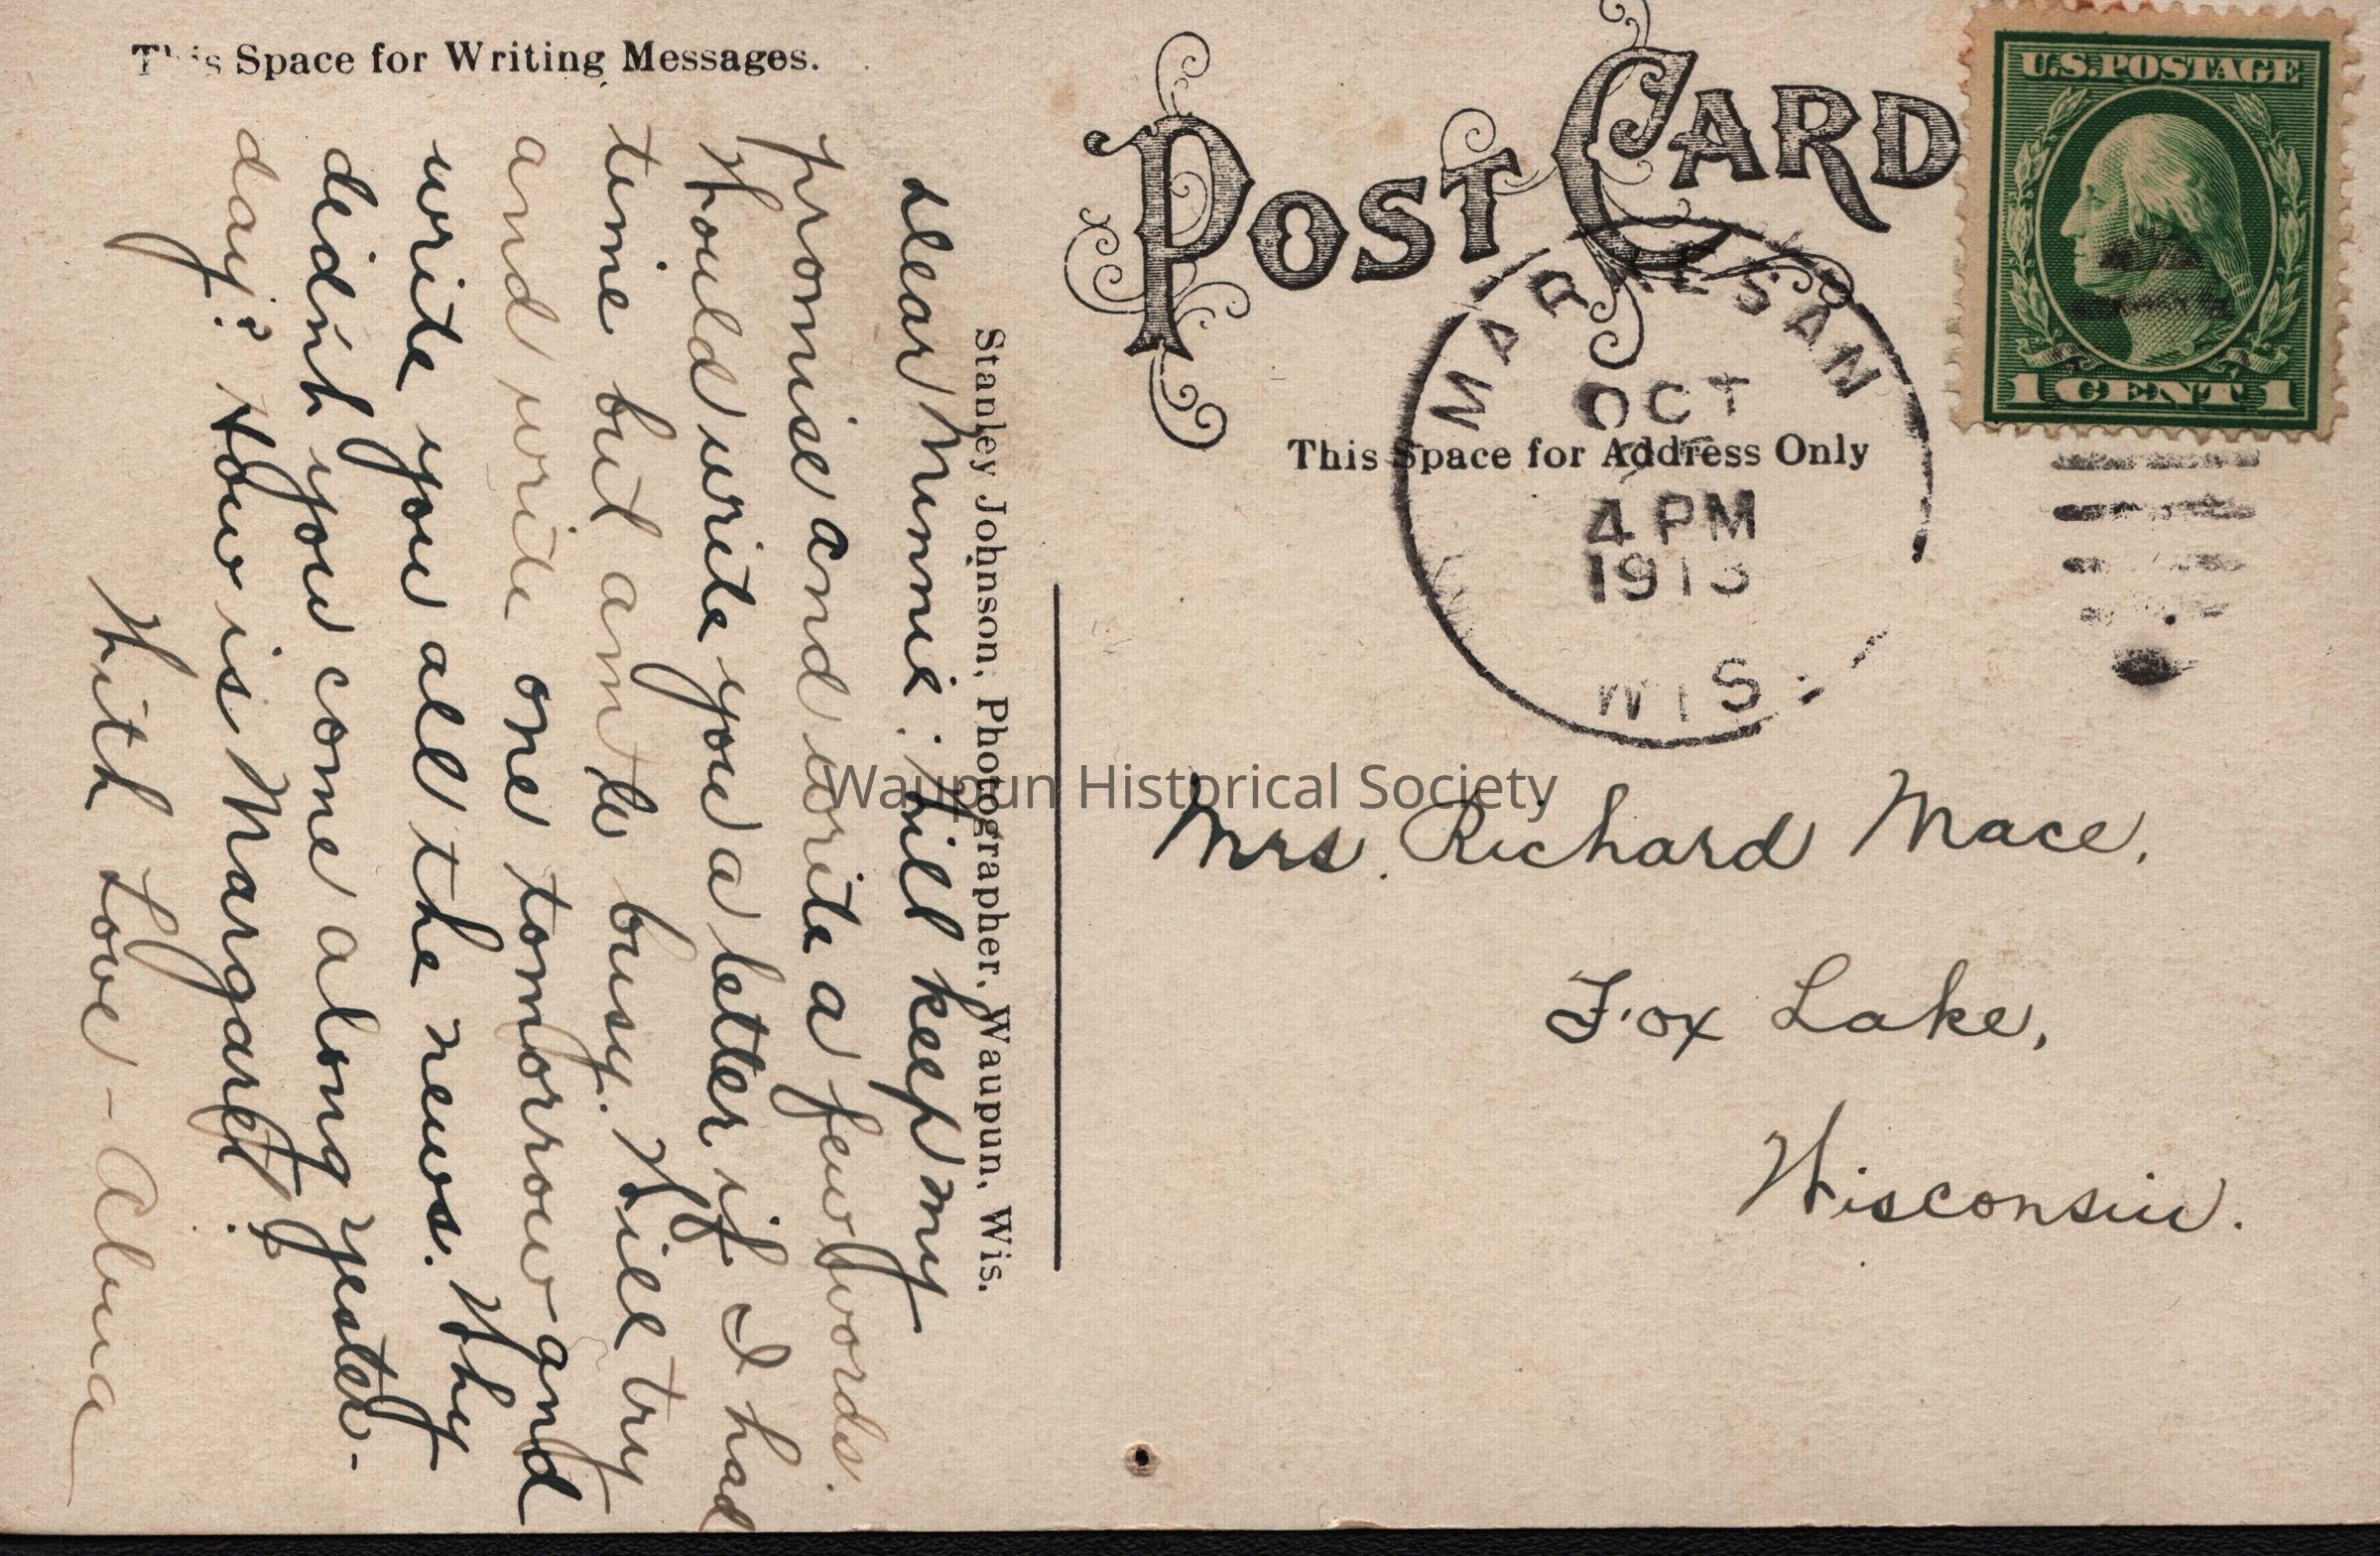 This Space for Writing Messages.
POST CARD
U.S. POSTAGE
1 CENT 1
MARKESAN
OCT
4 PM
1913
WIS.
This Space for Address Only
Mrs. Richard Mace,
Fox Lake,
Wisconsin.
Stanley Johnson, Photographer, Waupun, Wis.
Dear Minnie: Will keep my
promise and write a few words.
Would write you a letter if I had
time but am to busy. Will try
and write one tomorrow and
write you all the news. Why
didn't you come along yester-
day? How is Margaret?
With Love - Alma
Waupun Historical Society